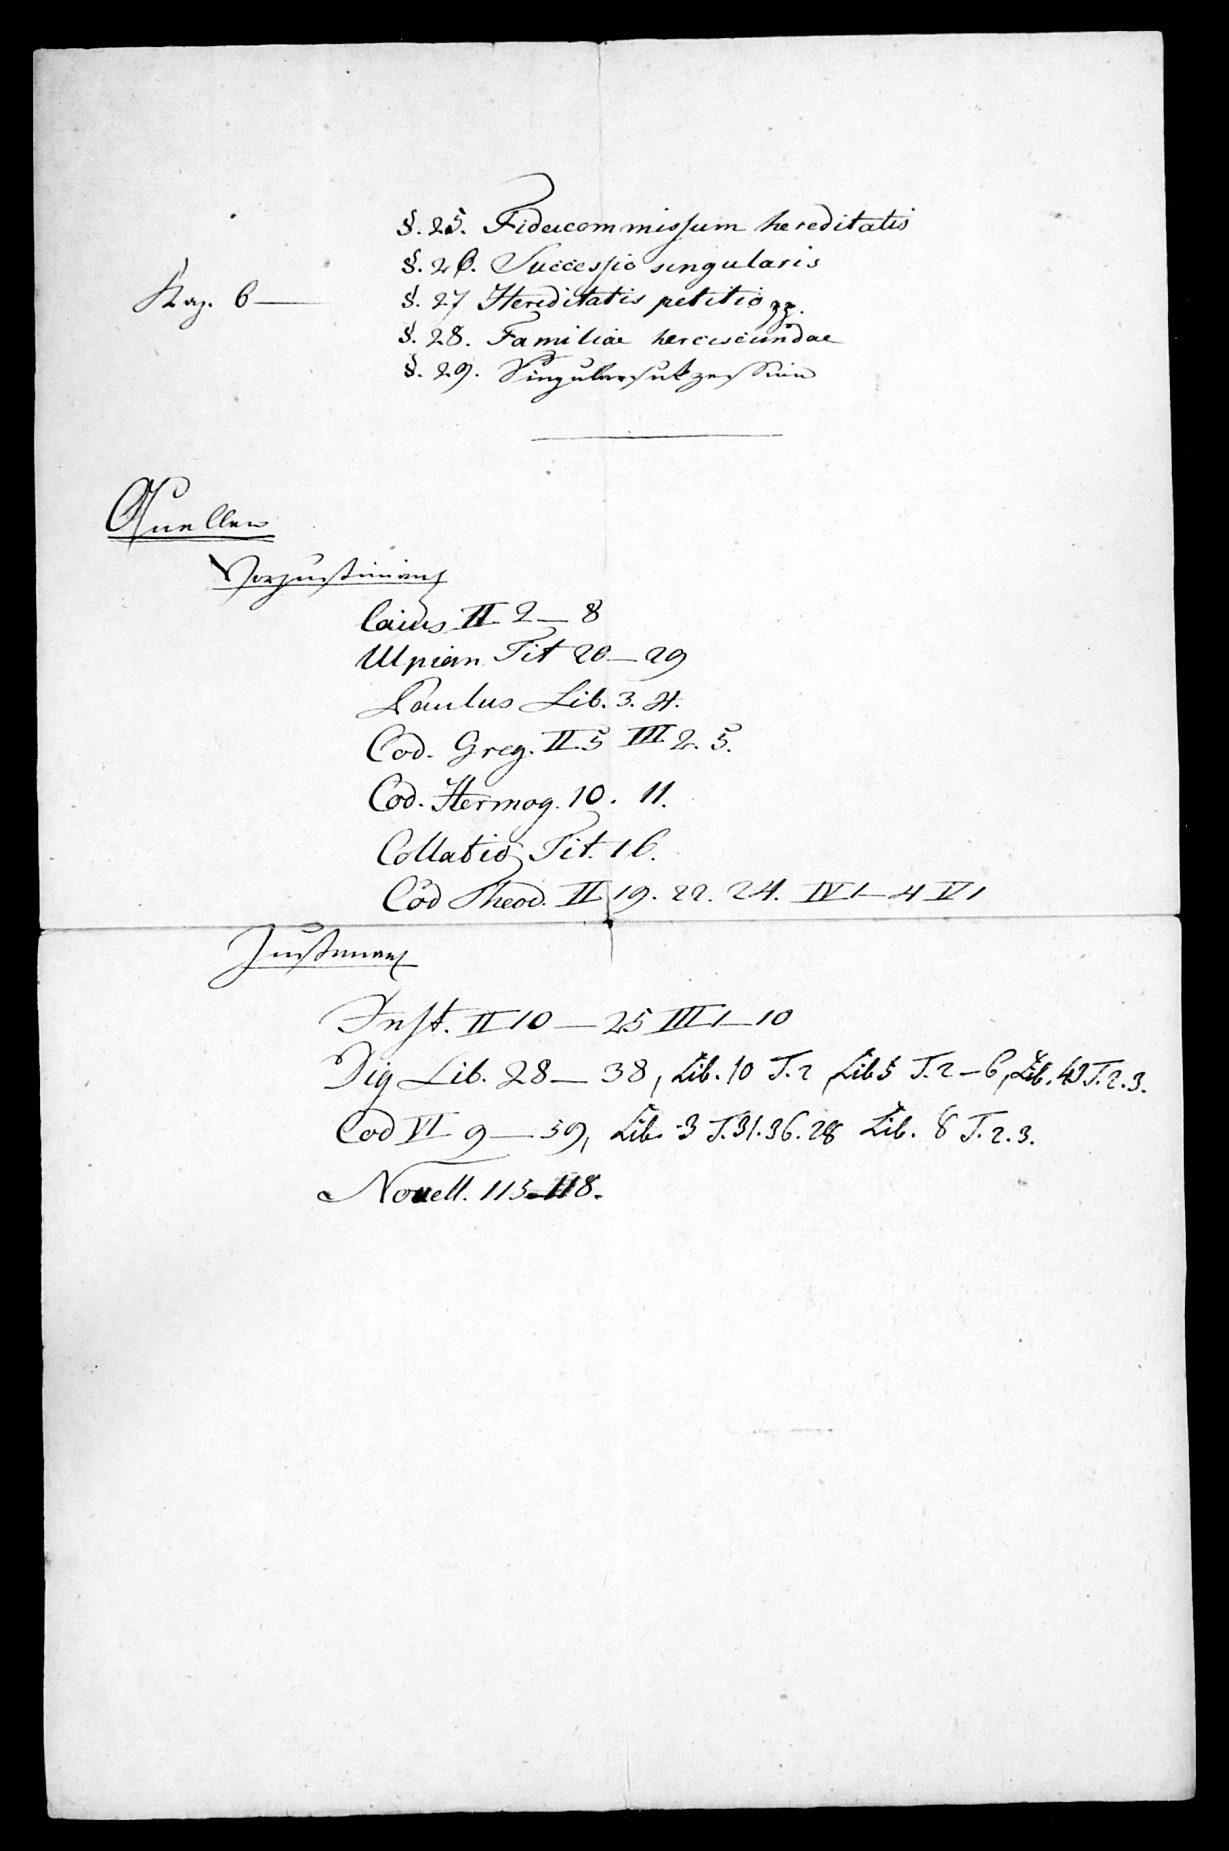 §. 25. Fideicommissum hereditatis
§. 26. Successio singularis
Kap. 6 — §. 27 Hereditatis petitio pp.
§. 28. Familiae herciscundae
§. 29. Singularsukzession
Quellen
Vorjustinian
Caius II 2 — 8
Ulpian Tit 20 — 29
Paulus Lib. 3. 4.
Cod. Greg. II. 5 III. 2. 5.
Cod. Hermog. 10. 11.
Collatio Tit. 16.
Cod Theod. II 19. 22. 24. IV 1 — 4 V 1
Justinian
Inst. II 10 — 25 III 1 — 10
Dig Lib. 28 — 38, Lib. 10 T. 2, Lib 5 T. 2 — 6, Lib. 43 T. 2. 3.
Cod VI 9 — 59, Lib. 3 T. 31. 36. 28 Lib. 8 T. 2. 3.
Novell. 115 — 118.